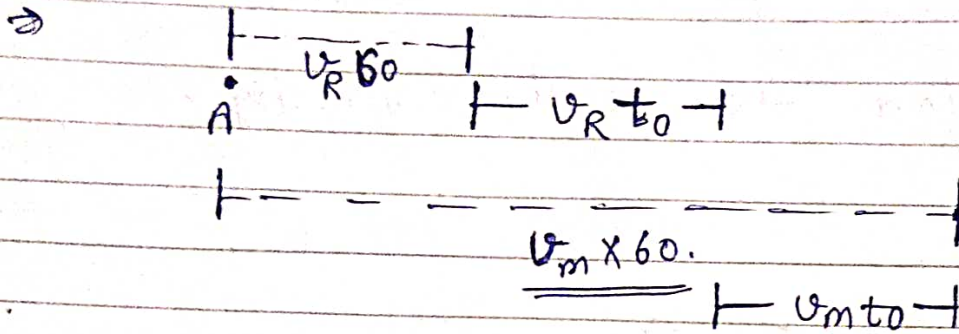 ⇒
v_R 60
A
v_R t_0
v_m × 60.
v_m t_0